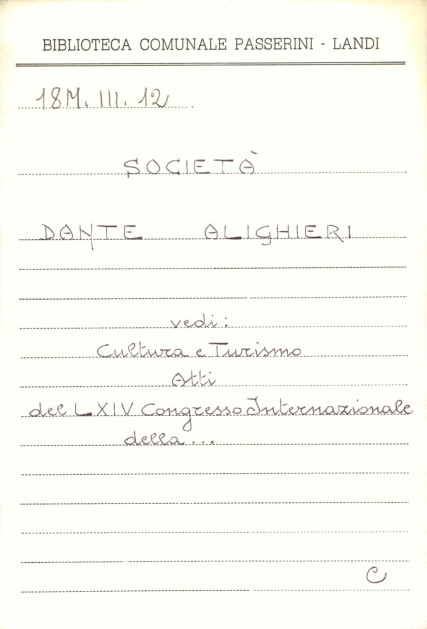 BIBLIOTECA COMUNALE PASSERINI - LANDI
18M. III. 12
SOCIETÀ
DANTE ALIGHIERI
vedi:
Cultura e Turismo
Atti
del LXIV Congresso Internazionale
della ...
C